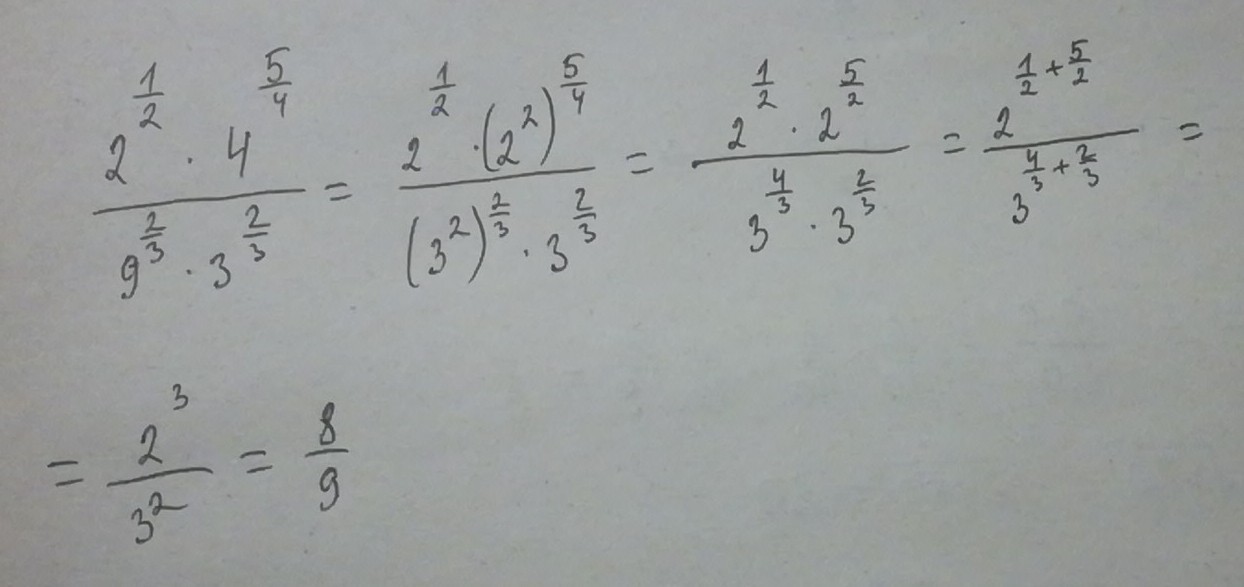 \frac{2^{\frac{1}{2}} \cdot 4^{\frac{5}{4}}}{9^{\frac{2}{3}} \cdot 3^{\frac{2}{3}}} = \frac{2^{\frac{1}{2}} \cdot (2^2)^{\frac{5}{4}}}{(3^2)^{\frac{2}{3}} \cdot 3^{\frac{2}{3}}} = \frac{2^{\frac{1}{2}} \cdot 2^{\frac{5}{2}}}{3^{\frac{4}{3}} \cdot 3^{\frac{2}{3}}} = \frac{2^{\frac{1}{2}+\frac{5}{2}}}{3^{\frac{4}{3}+\frac{2}{3}}} =
= \frac{2^3}{3^2} = \frac{8}{9}